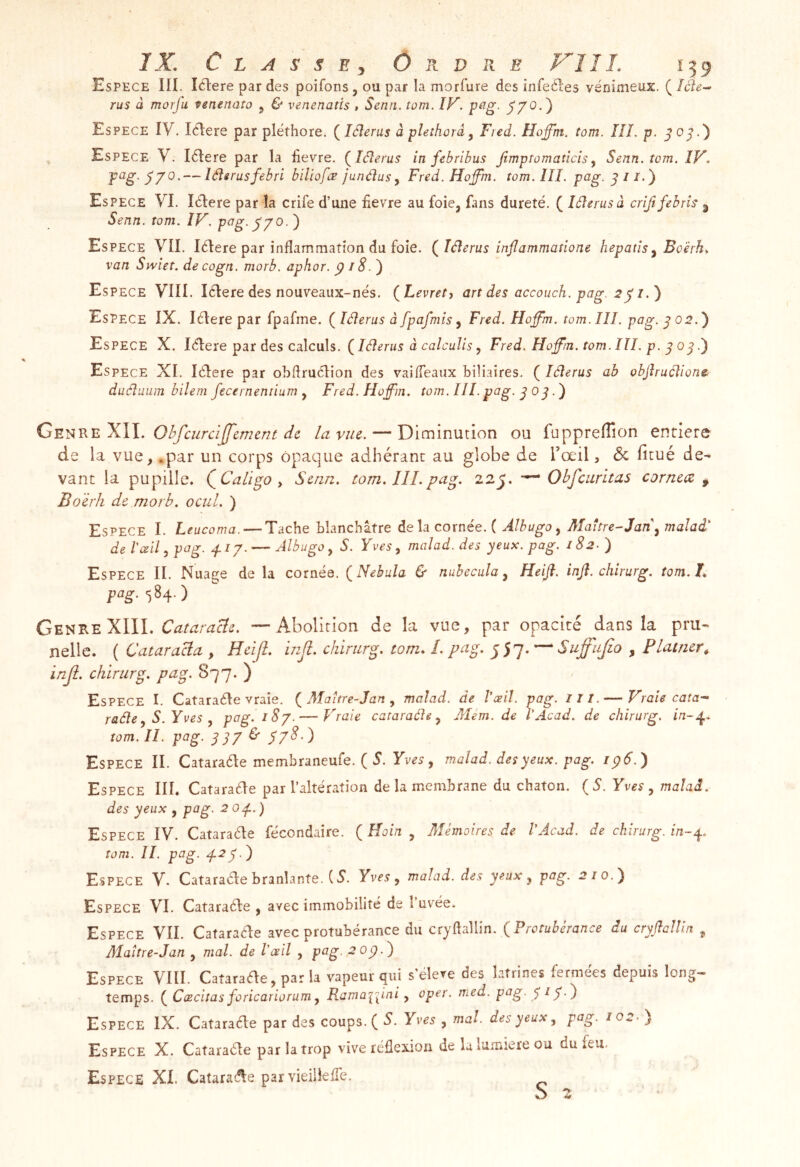 IX. CLASSE, ORDRE VIII. 139
ESPECE III. Ictere par des poisons, ou par la morsure des insectes vénimeux. (Icte-
rus à morsu venenato, & venenatis, Senn. tom. IV. pag. 570.)
ESPECE IV. Ictere par pléthore. (Icterus à plethorâ, Fred. Hoffm. tom. III. p. 303.)
ESPECE V. Ictere par la fievre. (Icterus in febribus simptomaticis, Senn. tom. IV.
pag. 570.— Icterus febri biliosæ junctus, Fred. Hoffm. tom. III. pag. 311.)
ESPECE VI. Ictere par la crise d'une fievre au foie, sans dureté. (Icterus à crisi febris,
Senn. tom. IV. pag. 570.)
ESPECE VII. Ictere par inflammation du foie. (Icterus inflammatione hepatis, Boërh.
van Swiet. de cogn. morb. aphor. 918.)
ESPECE VIII. Ictere des nouveaux-nés. (Levret, art des accouch. pag. 251.)
ESPECE IX. Ictere par spasme. (Icterus à spasmis, Fred. Hoffm. tom. III. pag. 302.)
ESPECE X. Ictere par des calculs. (Icterus à calculis, Fred. Hoffm. tom. III. p. 303.)
ESPECE XI. Ictere par obstruction des vaisseaux biliaires. (Icterus ab obstructione
ductuum bilem secernentium, Fred. Hoffm. tom. III. pag. 303.)
GENRE XII. Obscurcissement de la vue. — Diminution ou suppression entiere
de la vue, par un corps opaque adhérant au globe de l'œil, & situé de-
vant la pupille. (Caligo, Senn. tom. III. pag. 225. — Obscuritas corneæ,
Boërh de morb. ocul.)
ESPECE I. Leucoma.—Tache blanchâtre de la cornée. (Albugo, Maître-Jan, malad
de l'œil, pag. 417.— Albugo, S. Yves, malad. des yeux. pag. 182.)
ESPECE II. Nuage de la cornée. (Nebula & nubecula, Heist. inst. chirurg. tom. I.
pag. 584.)
GENRE XIII. Cataracte. — Abolition de la vue, par opacité dans la pru-
nelle. (Cataracta, Heist. inst. chirurg. tom. I. pag. 557. — Suffusio, Platner.
inst. chirurg. pag. 877.)
ESPECE I. Cataracte vraie. (Maître-Jan, malad. de l'œil. pag. 111.— Vraie cata-
racte, S. Yves, pag. 187.— Vraie cataracte, Mém. de l'Acad. de chirurg. in-4.
tom. II. pag. 337 & 578.)
ESPECE II. Cataracte membraneuse. (S. Yves, malad. des yeux. pag. 196.)
ESPECE III. Cataracte par l'altération de la membrane du chaton. (S. Yves, malad.
des yeux, pag. 204.)
ESPECE IV. Cataracte sécondaire. (Hoin, Mémoires de l'Acad. de chirurg. in-4.
tom. II. pag. 425.)
ESPECE V. Cataracte branlante. (S. Yves, malad. des yeux, pag. 210.)
ESPECE VI. Cataracte, avec immobilité de l'uvée.
ESPECE VII. Cataracte avec protubérance du crystallin. (Protubérance du crystallin,
Maître-Jan, mal. de l'œil, pag. 209.)
ESPECE VIII. Cataracte, par la vapeur qui s'éleve des latrines fermées depuis long-
temps. (Cæcitas foricariorum, Ramazzini, oper. med. pag. 515.)
ESPECE IX. Cataracte par des coups. (S. Yves, mal. des yeux, pag. 102.)
ESPECE X. Cataracte par la trop vive réflexion de la lumiere ou du feu.
ESPECE XI. Cataracte par vieillesse.
S 2